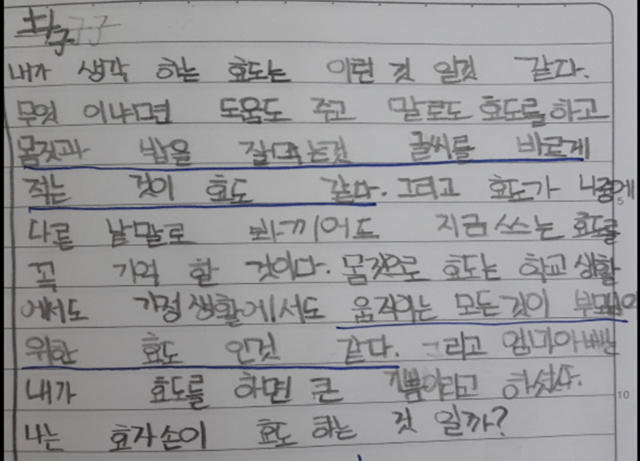 내가 생각 하는 효도는 이런 것 일것 같다.
무엇 이냐면 도움도 주고 말로도 효도를하고
몸짓과 밥을 잘먹는것 글씨를 바르게
적는 것이 효도 같다. 그리고 효도가 나중에
다른 낱말로 바뀌어도 지금 쓰는 효도를
꼭 기억 할 것이다. 몸짓으로 효도는 학교 생활
에서도 가정 생활에서도 움직이는 모든것이 부모님
위한 효도 인것 같다. 그리고 엄마아빠는
내가 효도를 하면 큰 기쁨이라고 하셨다.
나는 효자손이 효도 하는 것 일까?